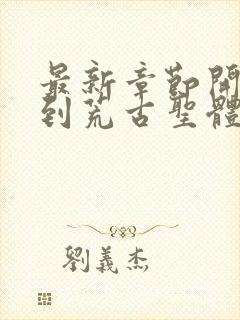 最新章節開
到荒古聖體
劉義杰